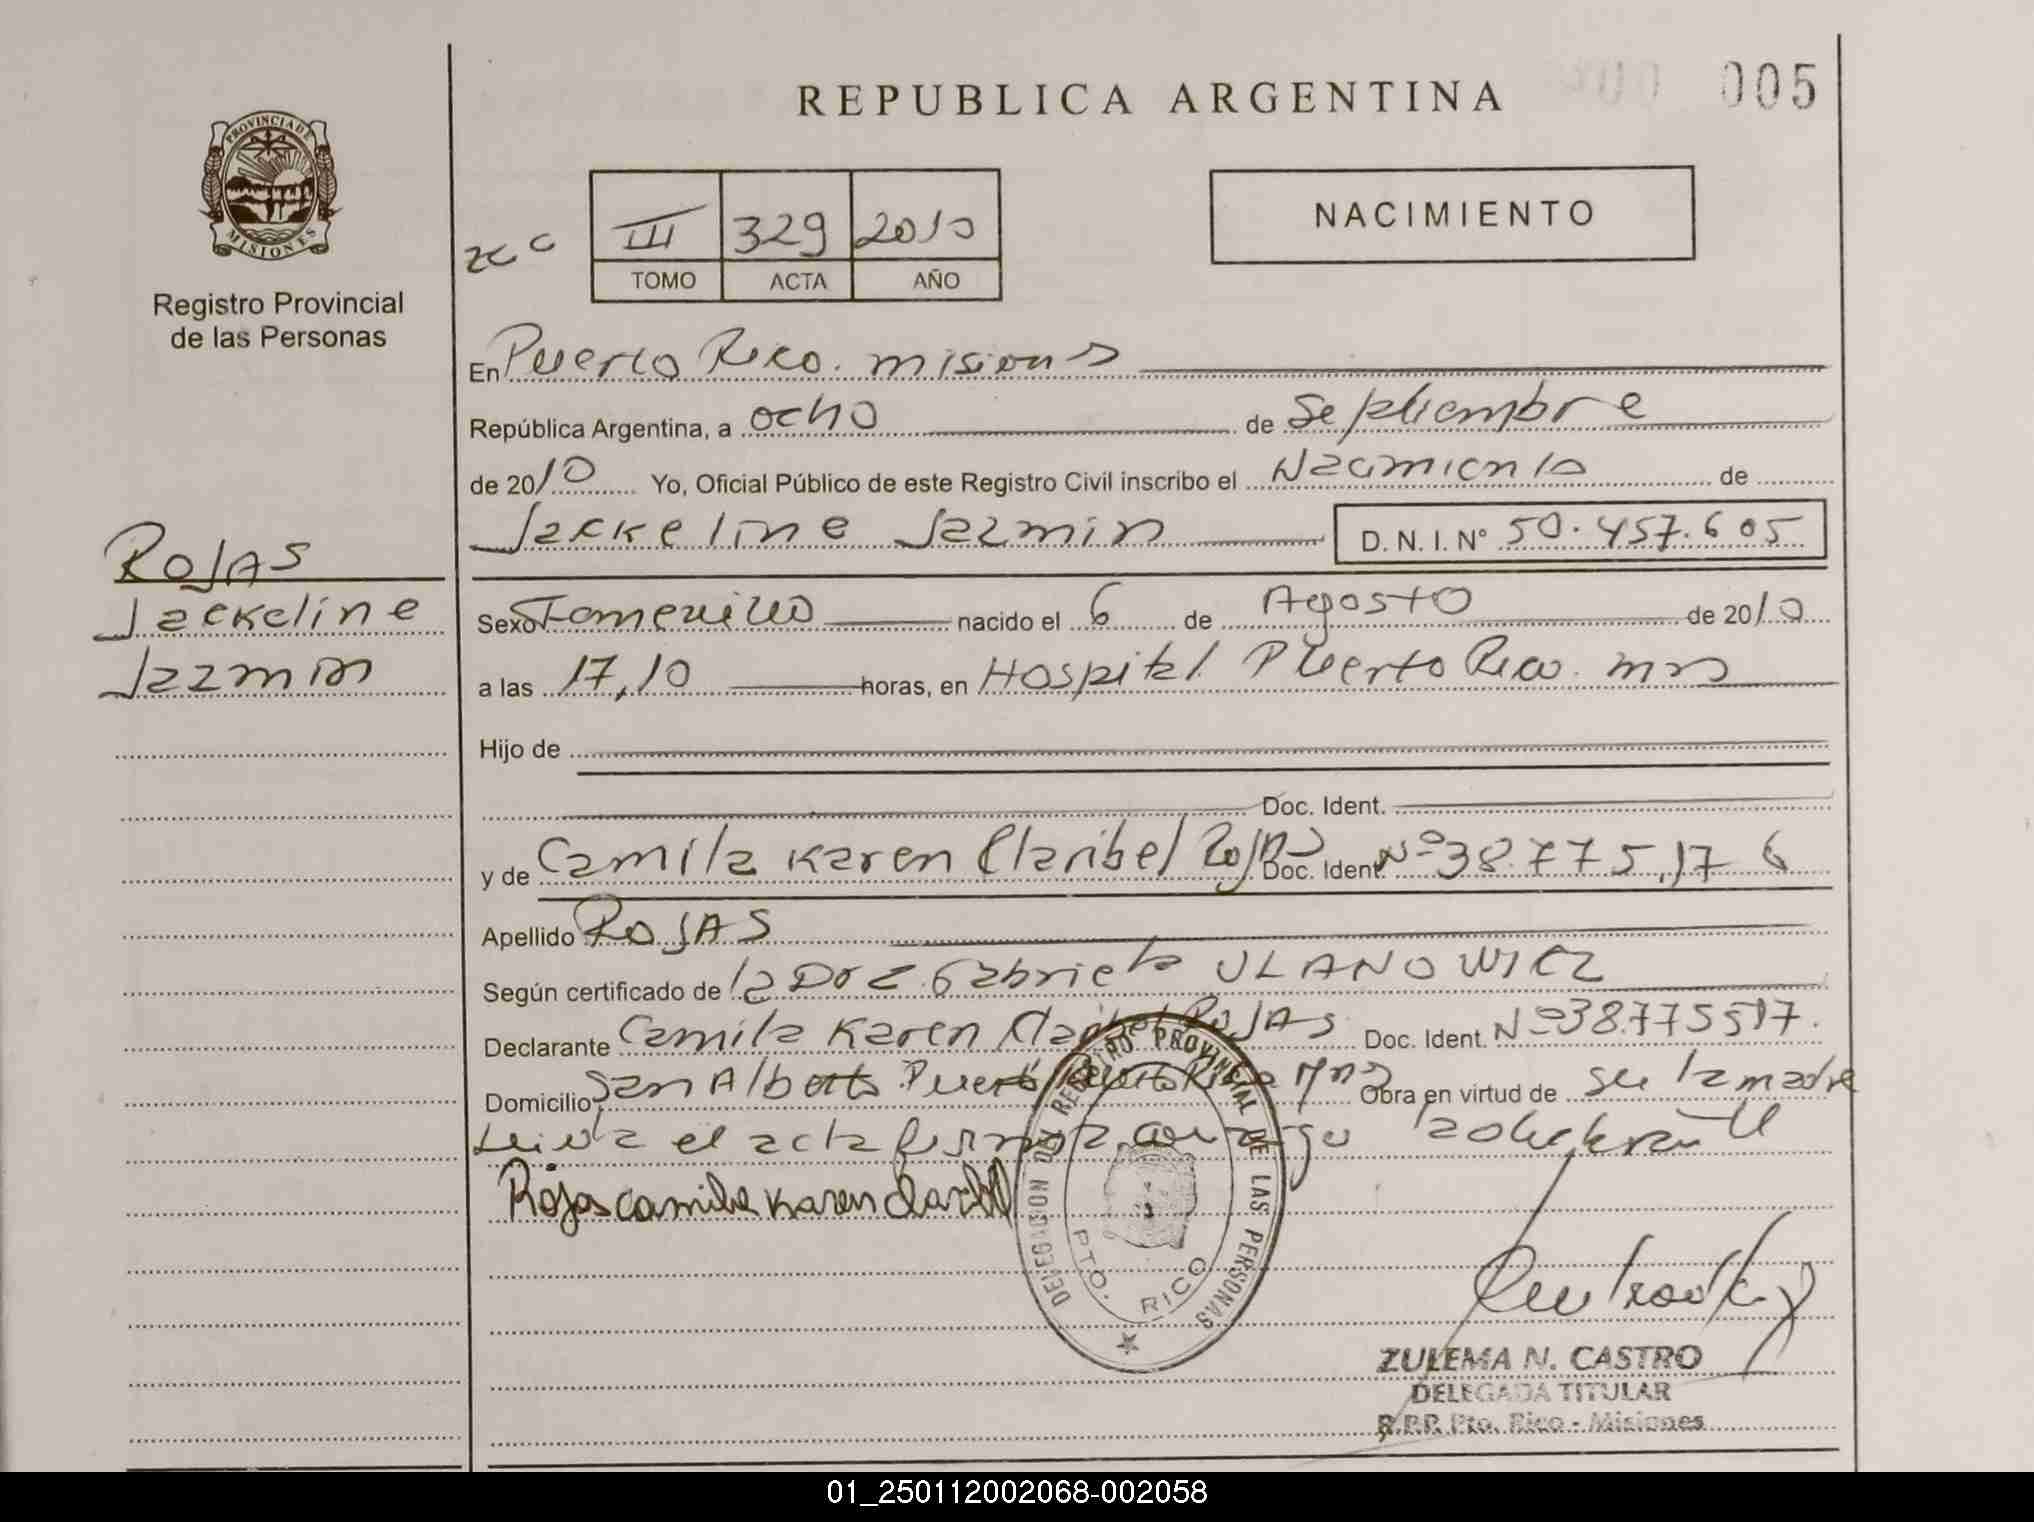 REPUBLICA ARGENTINA
005
PROVINCIA DE MISIONES
Registro Provincial
de las Personas
NACIMIENTO
III 329 2010
TOMO ACTA AÑO
En Puerto Rico. misiones
República Argentina, a ocho de Septiembre
de 2010 Yo, Oficial Público de este Registro Civil inscribo el Nacimiento de
Jackeline Jazmin D. N. I. N° 50.457.605
ROJAS
Jackeline
Jazmin
Sexo Femenino nacido el 6 de Agosto de 2010
a las 17,10 horas, en Hospital Puerto Rico. mns
Hijo de
Doc. Ident.
y de Camila Karen Claribel Rojas Doc. Ident. Nº 38.775.176
Apellido ROJAS
Según certificado de la Dra. Gabriela ULANOWICZ
Declarante Camila Karen Claribel ROJAS Doc. Ident. Nº 38.775517.
Domicilio San Alberto Puerto Puerto Rico Mns Obra en virtud de ser la madre
Leida el acta firma conmigo la declarante
Rojas Camila Karen Claribel
DELEGACION DEL REGISTRO PROVINCIAL DE LAS PERSONAS
PTO. RICO
ZULEMA N. CASTRO
DELEGADA TITULAR
R.P.P. Pto. Rico - Misiones
01_250112002068-002058